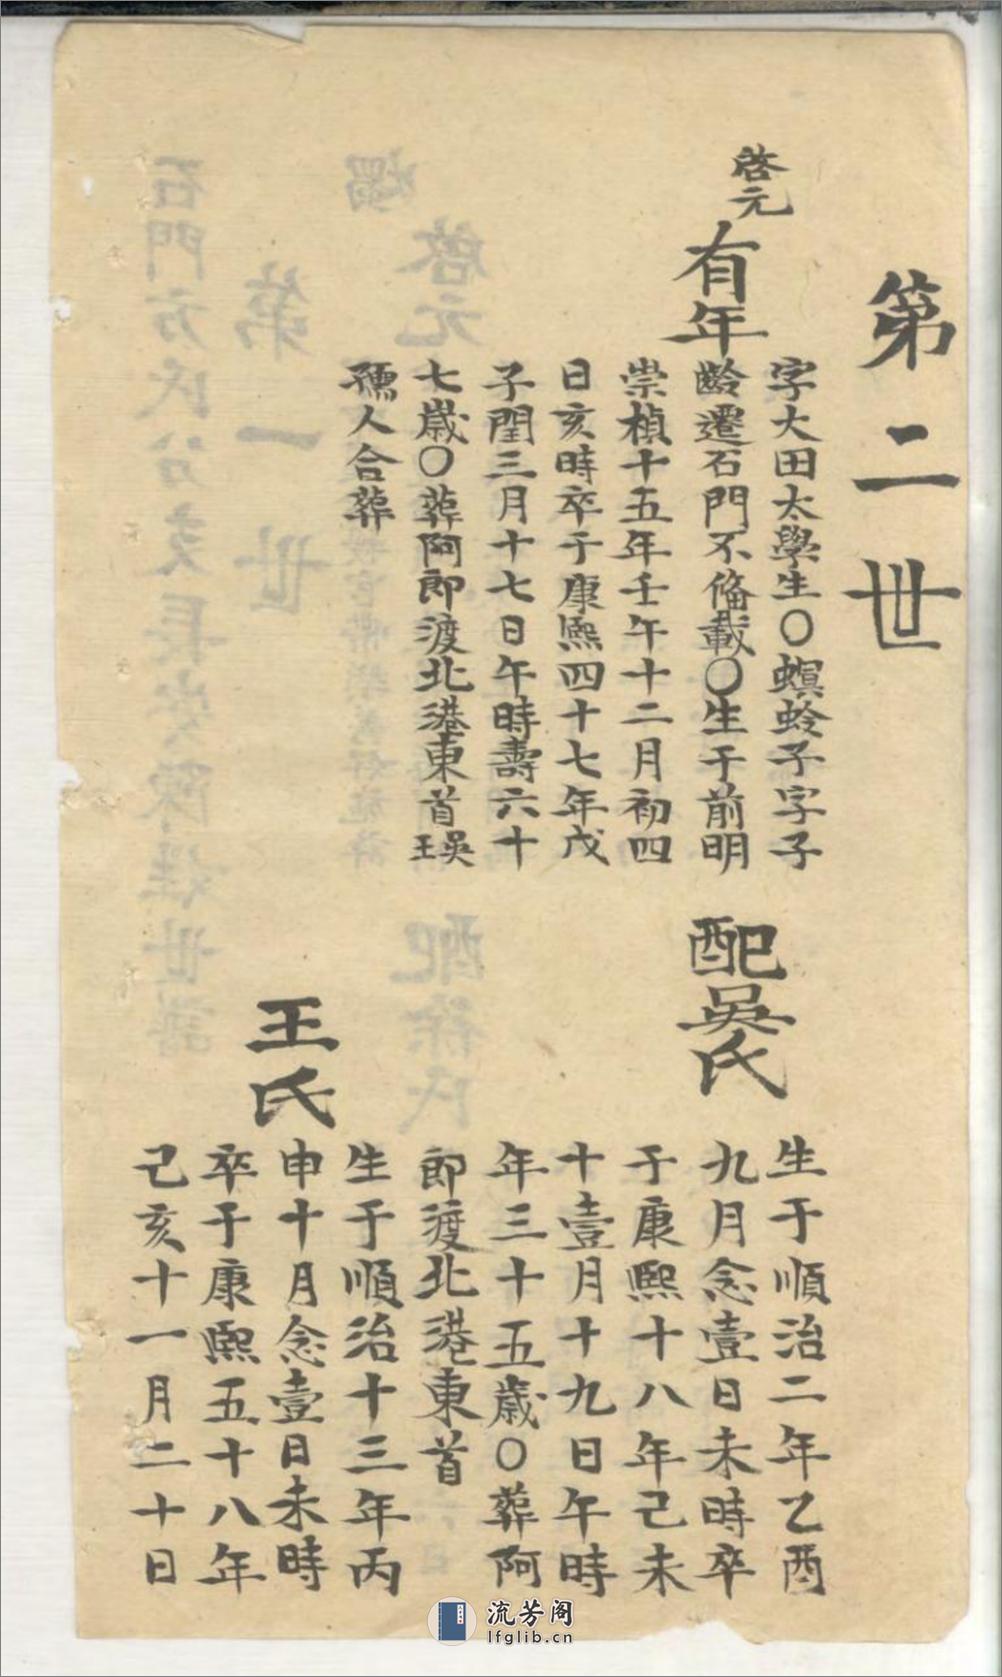 第二世
啓元
有年
字大田太學生〇螟蛉子字子
齡遷石門不俻載〇生于前明
崇楨十五年壬午十二月初四
日亥時卒于康熙四十七年戊
子閏三月十七日午時壽六十
七歲〇葬阿郎渡北港東首吳王
孺人合葬
配吳氏
生于順治二年乙酉
九月念壹日未時卒
于康熙十八年己未
十壹月十九日午時
年三十五歲〇葬阿
郎渡北港東首
王氏
生于順治十三年丙
申十月念壹日未時
卒于康熙五十八年
己亥十一月二十日
流芳阁
lfglib.cn